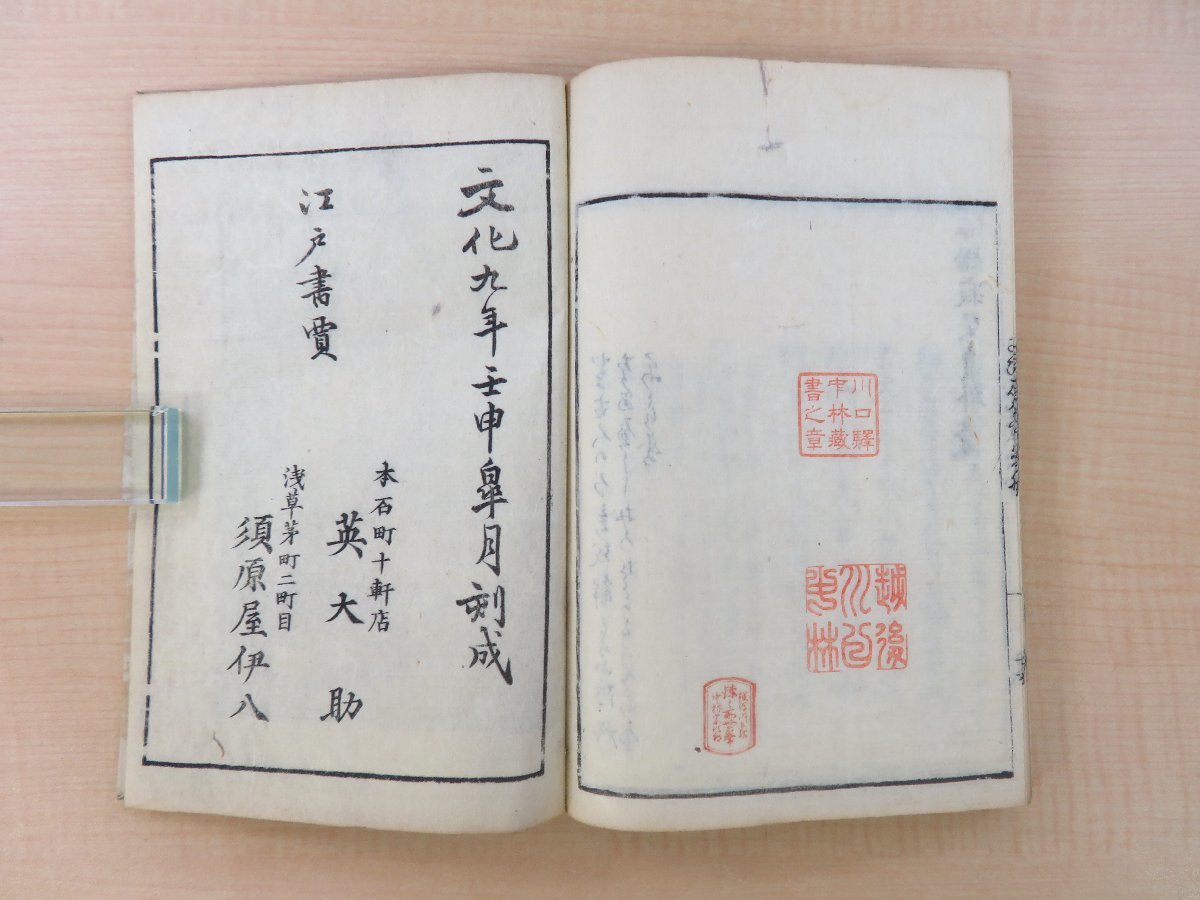 川口驛
中林藏
書之章
越後
川口
中林
文化九年壬申皐月刻成
江戸書賈
本石町十軒店
英大助
浅草茅町二町目
須原屋伊八